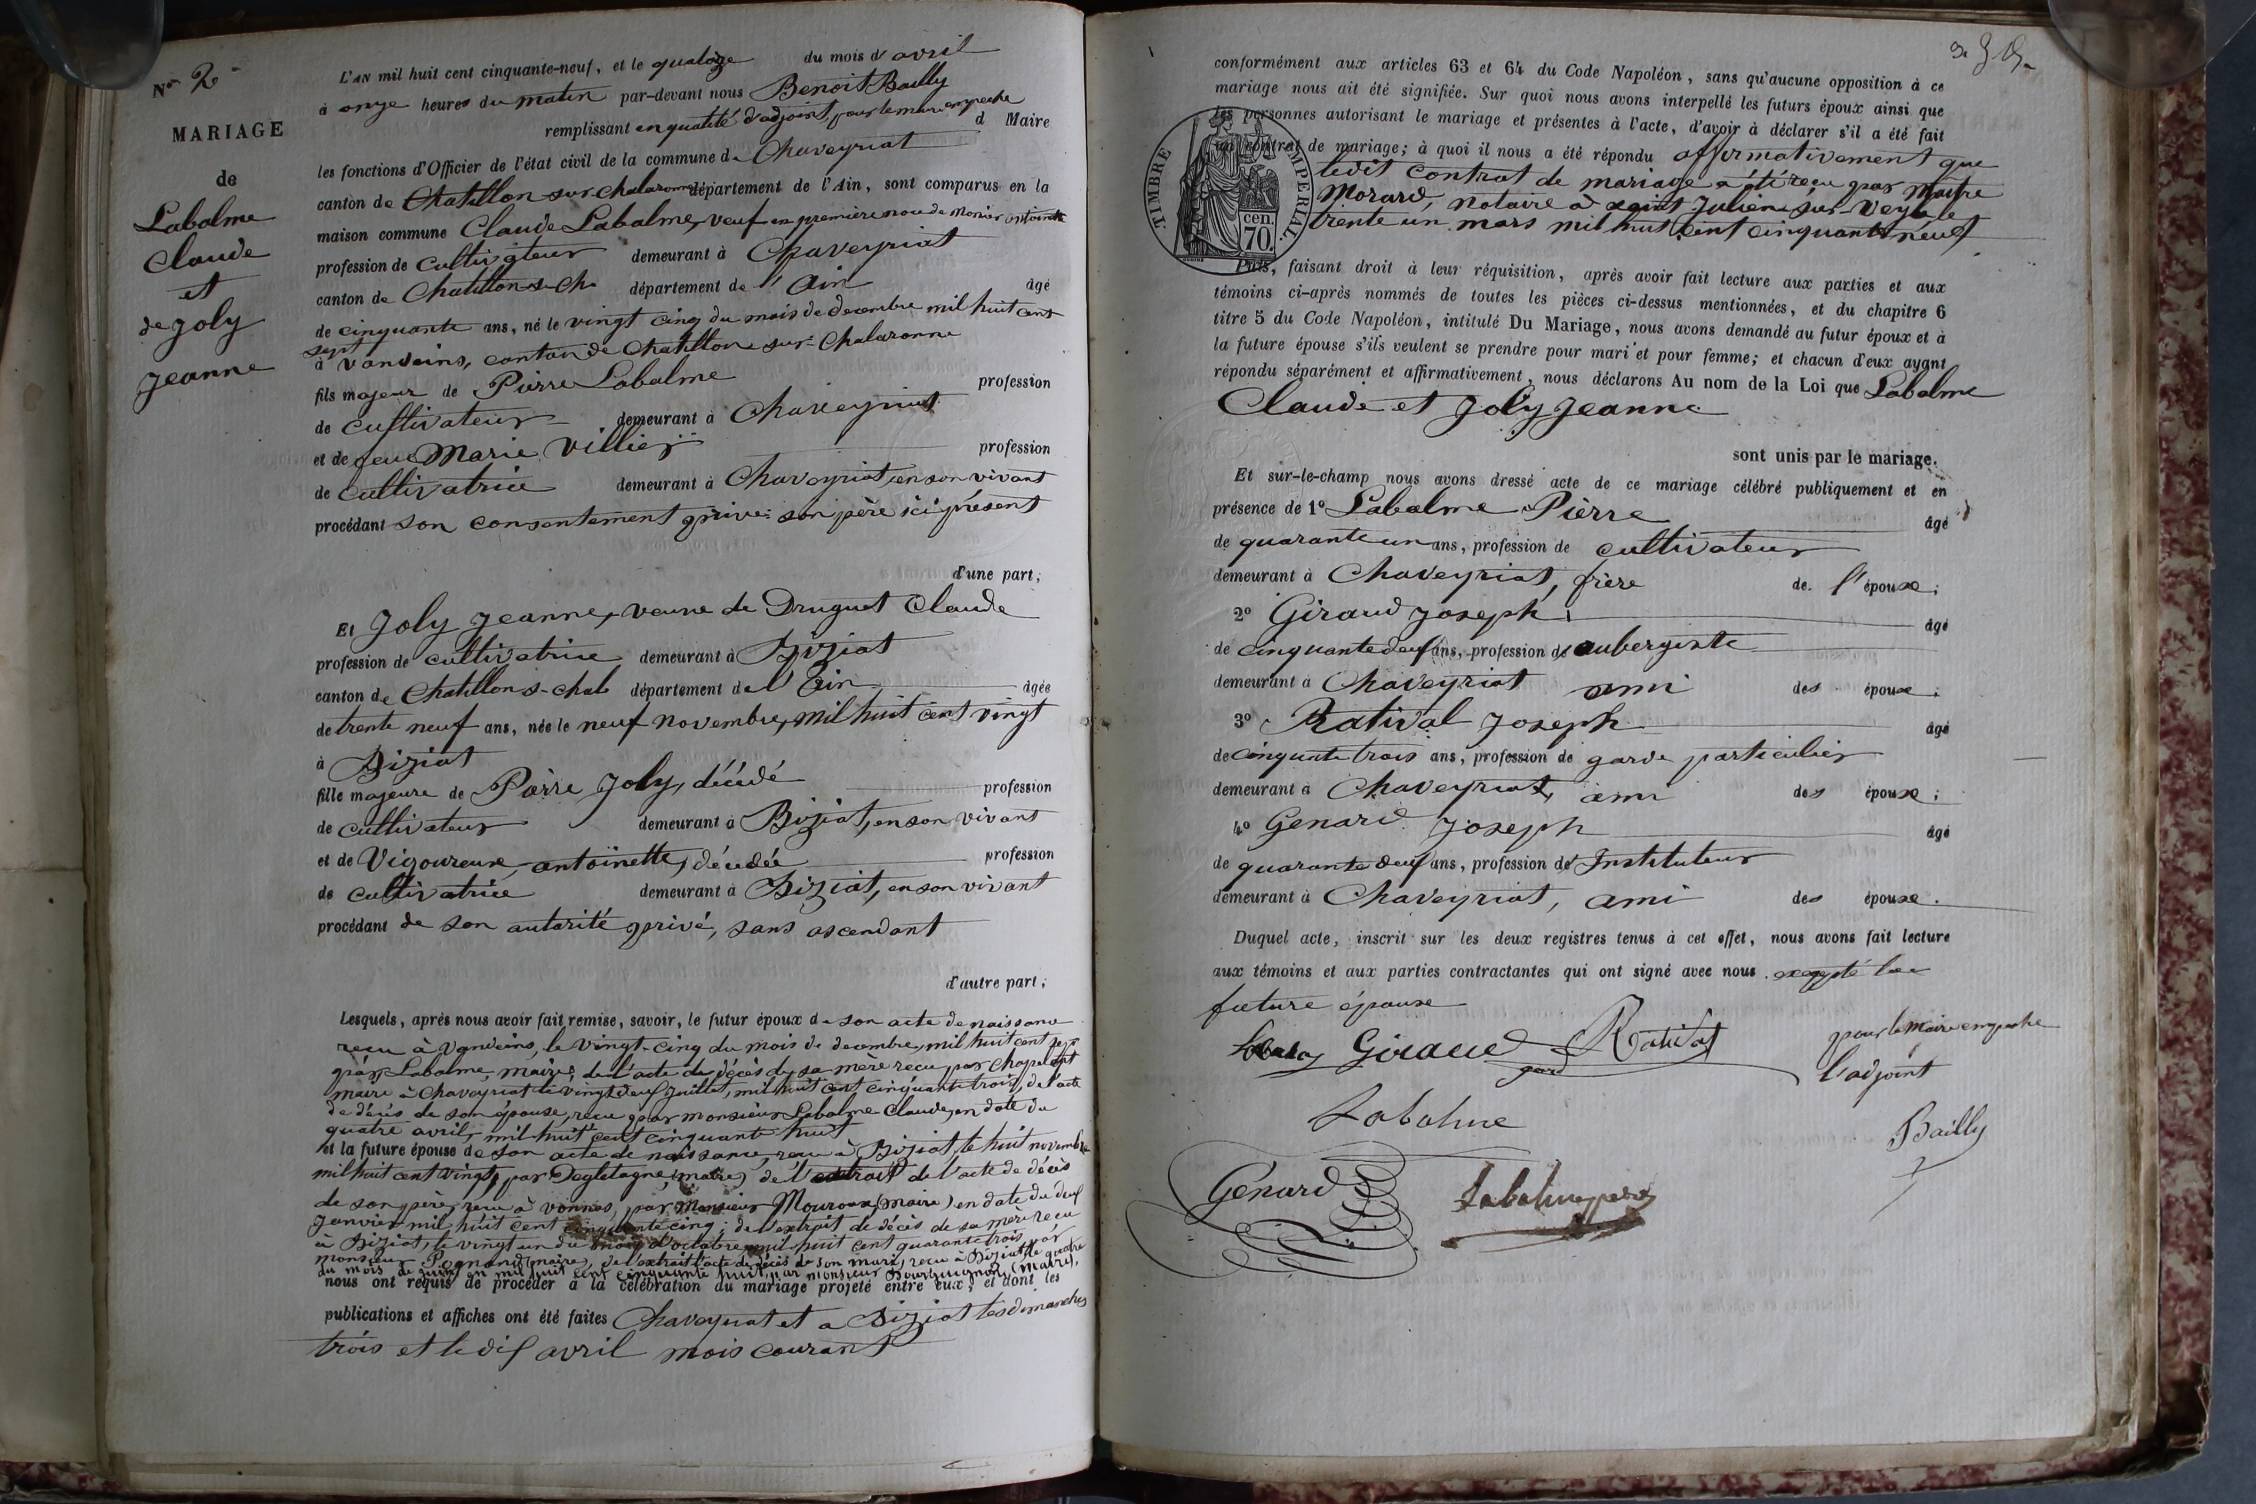 No 2
MARIAGE
de
Labalme
Claude
et
de Joly
Jeanne
L'AN mil huit cent cinquante-neuf, et le quatorze du mois d'avril
à onze heures du matin par-devant nous Benoit Bailly
remplissant en qualité d'adjoint, pour le maire empeché d Maire
les fonctions d'Officier de l'état civil de la commune de Chaveyriat
canton de Chatillon sur Chalaronne département de l'Ain, sont comparus en la
maison commune Claude Labalme, veuf en première noce de Monier
profession de cultivateur demeurant à Chaveyriat
canton de Chatillon-s-Ch. département de l'Ain âgé
de cinquante ans, né le vingt cinq du mois de decembre mil huit cent
sept
à Vandeins, canton de Chatillon sur Chalaronne
fils majeur de Pierre Labalme profession
de cultivateur demeurant à Chaveyriat
et de feue Marie Villier profession
de cultivatrice demeurant à Chaveyriat, en son vivant
procédant son consentement privé son père ici présent
d'une part;
Et Joly Jeanne, veuve de Druguet Claude
profession de cultivatrice demeurant à Biziat
canton de Chatillon s-Chal département de l'Ain âgée
de trente neuf ans, née le neuf novembre, mil huit cent vingt
à Biziat
fille majeure de Pierre Joly, décédé profession
de cultivateur demeurant à Biziat, en son vivant
et de Vigoureux antoinette, décédée profession
de cultivatrice demeurant à Biziat, en son vivant
procédant de son autorité privé, sans ascendant
d'autre part;
Lesquels, après nous avoir fait remise, savoir, le futur époux de son acte de naissance
reçu à Vandeins, le vingt-cinq du mois de decembre, mil huit cent sept
par Labalme, maire, de l'acte de décès de sa mère reçu par Chapelent
maire à Chaveyriat le vingt deuf Juillet, mil huit cent cinquante trois, de l'acte
de décès de son épouse, reçu par monsieur Labalme Claude, en date du
quatre avril, mil huit cent cinquante huit
et la future épouse de son acte de naissance, reçu à Biziat, le huit novembre
mil huit cent vingt, par (maire) de l'extrait de l'acte de décès
de son père, reçu à Vonnas, par Monsieur Mouroux (maire) en date du deuf
Janvier mil huit cent cinquante cinq; de l'extrait de décès de sa mère reçu
à Biziat, le vingt un du mois d'octobre mil huit cent quarante trois, par
monsieur (maire), de l'extrait l'acte de décès de son mari, reçu à Biziat, le quatre
du mois de juin, en mil huit cent cinquante huit, par monsieur (maire),
nous ont requis de procéder à la célébration du mariage projeté entre eux, et dont les
publications et affiches ont été faites Chaveyriat et a Biziat les dimanches
trois et le dix avril mois courant
conformément aux articles 63 et 64 du Code Napoléon, sans qu'aucune opposition à ce
mariage nous ait été signifiée. Sur quoi nous avons interpellé les futurs époux ainsi que
les personnes autorisant le mariage et présentes à l'acte, d'avoir à déclarer s'il a été fait
un contrat de mariage; à quoi il nous a été répondu affirmativement que
ledit contrat de mariage a été reçu par Maitre
Morard, notaire à saint Julien-sur-Veyle le
trente un mars mil huit cent cinquante neuf
TIMBRE IMPERIAL
70 cen.
Puis, faisant droit à leur réquisition, après avoir fait lecture aux parties et aux
témoins ci-après nommés de toutes les pièces ci-dessus mentionnées, et du chapitre 6
titre 5 du Code Napoléon, intitulé Du Mariage, nous avons demandé au futur époux et à
la future épouse s'ils veulent se prendre pour mari et pour femme; et chacun d'eux ayant
répondu séparément et affirmativement, nous déclarons Au nom de la Loi que Labalme
Claude et Joly Jeanne
sont unis par le mariage.
Et sur-le-champ nous avons dressé acte de ce mariage célébré publiquement et en
présence de 1º Labalme Pierre âgé
de quarante un ans, profession de cultivateur
demeurant à Chaveyriat, frère de l'épouse;
2º Giraud Joseph âgé
de cinquante deuf ans, profession de aubergiste
demeurant à Chaveyriat ami des épouse;
3º Ratival Joseph âgé
de cinquante trois ans, profession de garde particulier
demeurant à Chaveyriat, ami des épouse;
4º Genard Joseph âgé
de quarante deuf ans, profession d'Instituteur
demeurant à Chaveyriat, ami des épouse.
Duquel acte, inscrit sur les deux registres tenus à cet effet, nous avons fait lecture
aux témoins et aux parties contractantes qui ont signé avec nous excepté la
future épouse
Giraud
pour le Maire empeché
l'adjoint
Labalme
Bailly
Génard
Labalme père